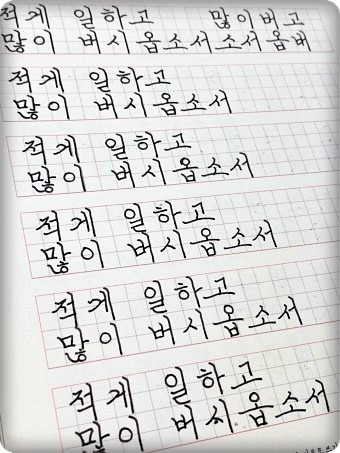 적게 일하고 많이버고
많이 버시옵소서소서옵버
적게 일하고
많이 버시옵소서
적게 일하고
많이 버시옵소서
적게 일하고
많이 버시옵소서
적게 일하고
많이 버시옵소서
적게 일하고
많이 버시옵소서